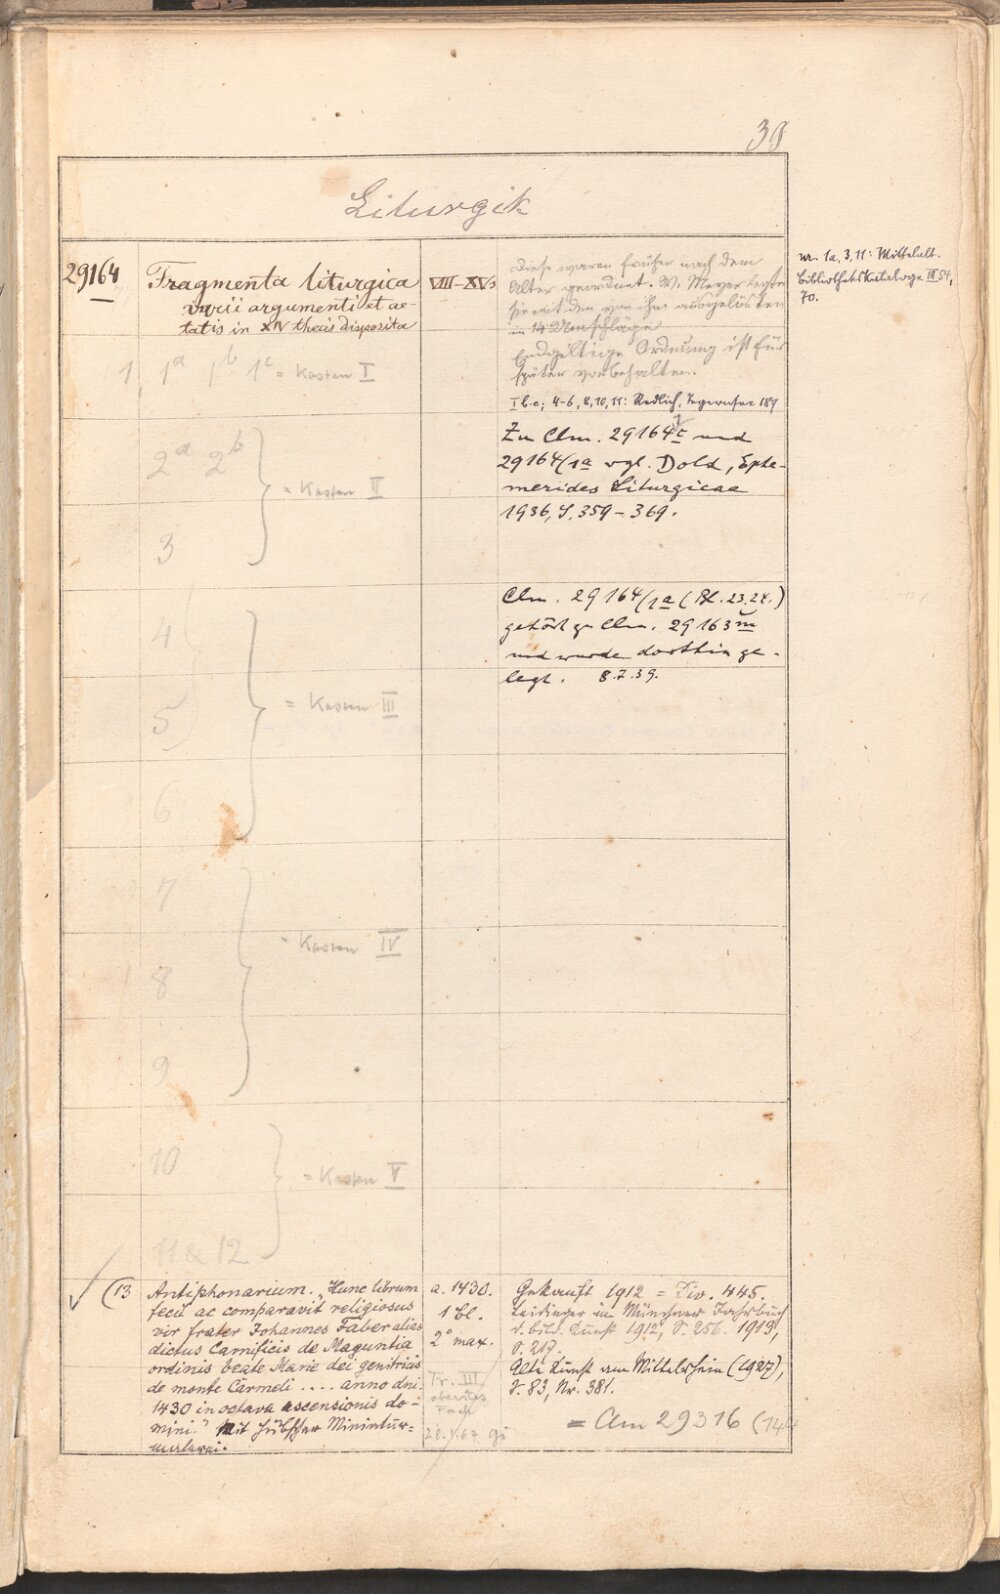 38
Liturgik
29164
Fragmenta liturgica
varii argumenti et ae-
tatis in XIV thecis disposita
VIII–XVs
Diese waren früher nach dem
Alter geordnet. W. Meyer legte
sie mit den von ihm ausgelösten
in 14 Umschläge
Endgültige Ordnung ist für
später vorbehalten.
I b.c; 4-6, 8, 10, 11: Redlich, Tegernsee 189
nr. 1a, 3, 11: Mittelalt.
Bibliothekskataloge III 54,
70.
1, 1a 1b 1c = Kasten I
Zu Clm. 29164 und
29164/1a vgl. Dold, Ephe-
merides Liturgicae
1936, S. 359–369.
2a 2b
= Kasten II
3
Clm. 29164/1a (Bl. 23, 24.)
gehört zu Clm. 29163m
und wurde dorthin ge-
legt. 8.7.39.
4
5
= Kasten III
6
7
= Kasten IV
8
9
10
= Kasten V
11 & 12
(13
Antiphonarium. „Hunc librum
fecit ac comparavit religiosus
vir frater Johannes Faber alias
dictus Carnificis de Maguntia
ordinis beate Marie dei genitricis
de monte Carmeli .... anno dni
1430 in octava ascensionis do-
mini." Mit hübscher Miniatur-
malerei.
a. 1430.
1 Bl.
2° max.
Tr. III/
oberstes
Fach
Gekauft 1912 = Div. 445.
Leidinger im Münchner Jahrbuch
d. bild. Kunst 1912, S. 256. 1913,
S. 217.
Alte Kunst am Mittelrhein (1927),
S. 83, Nr. 381.
= Clm 29316 (14